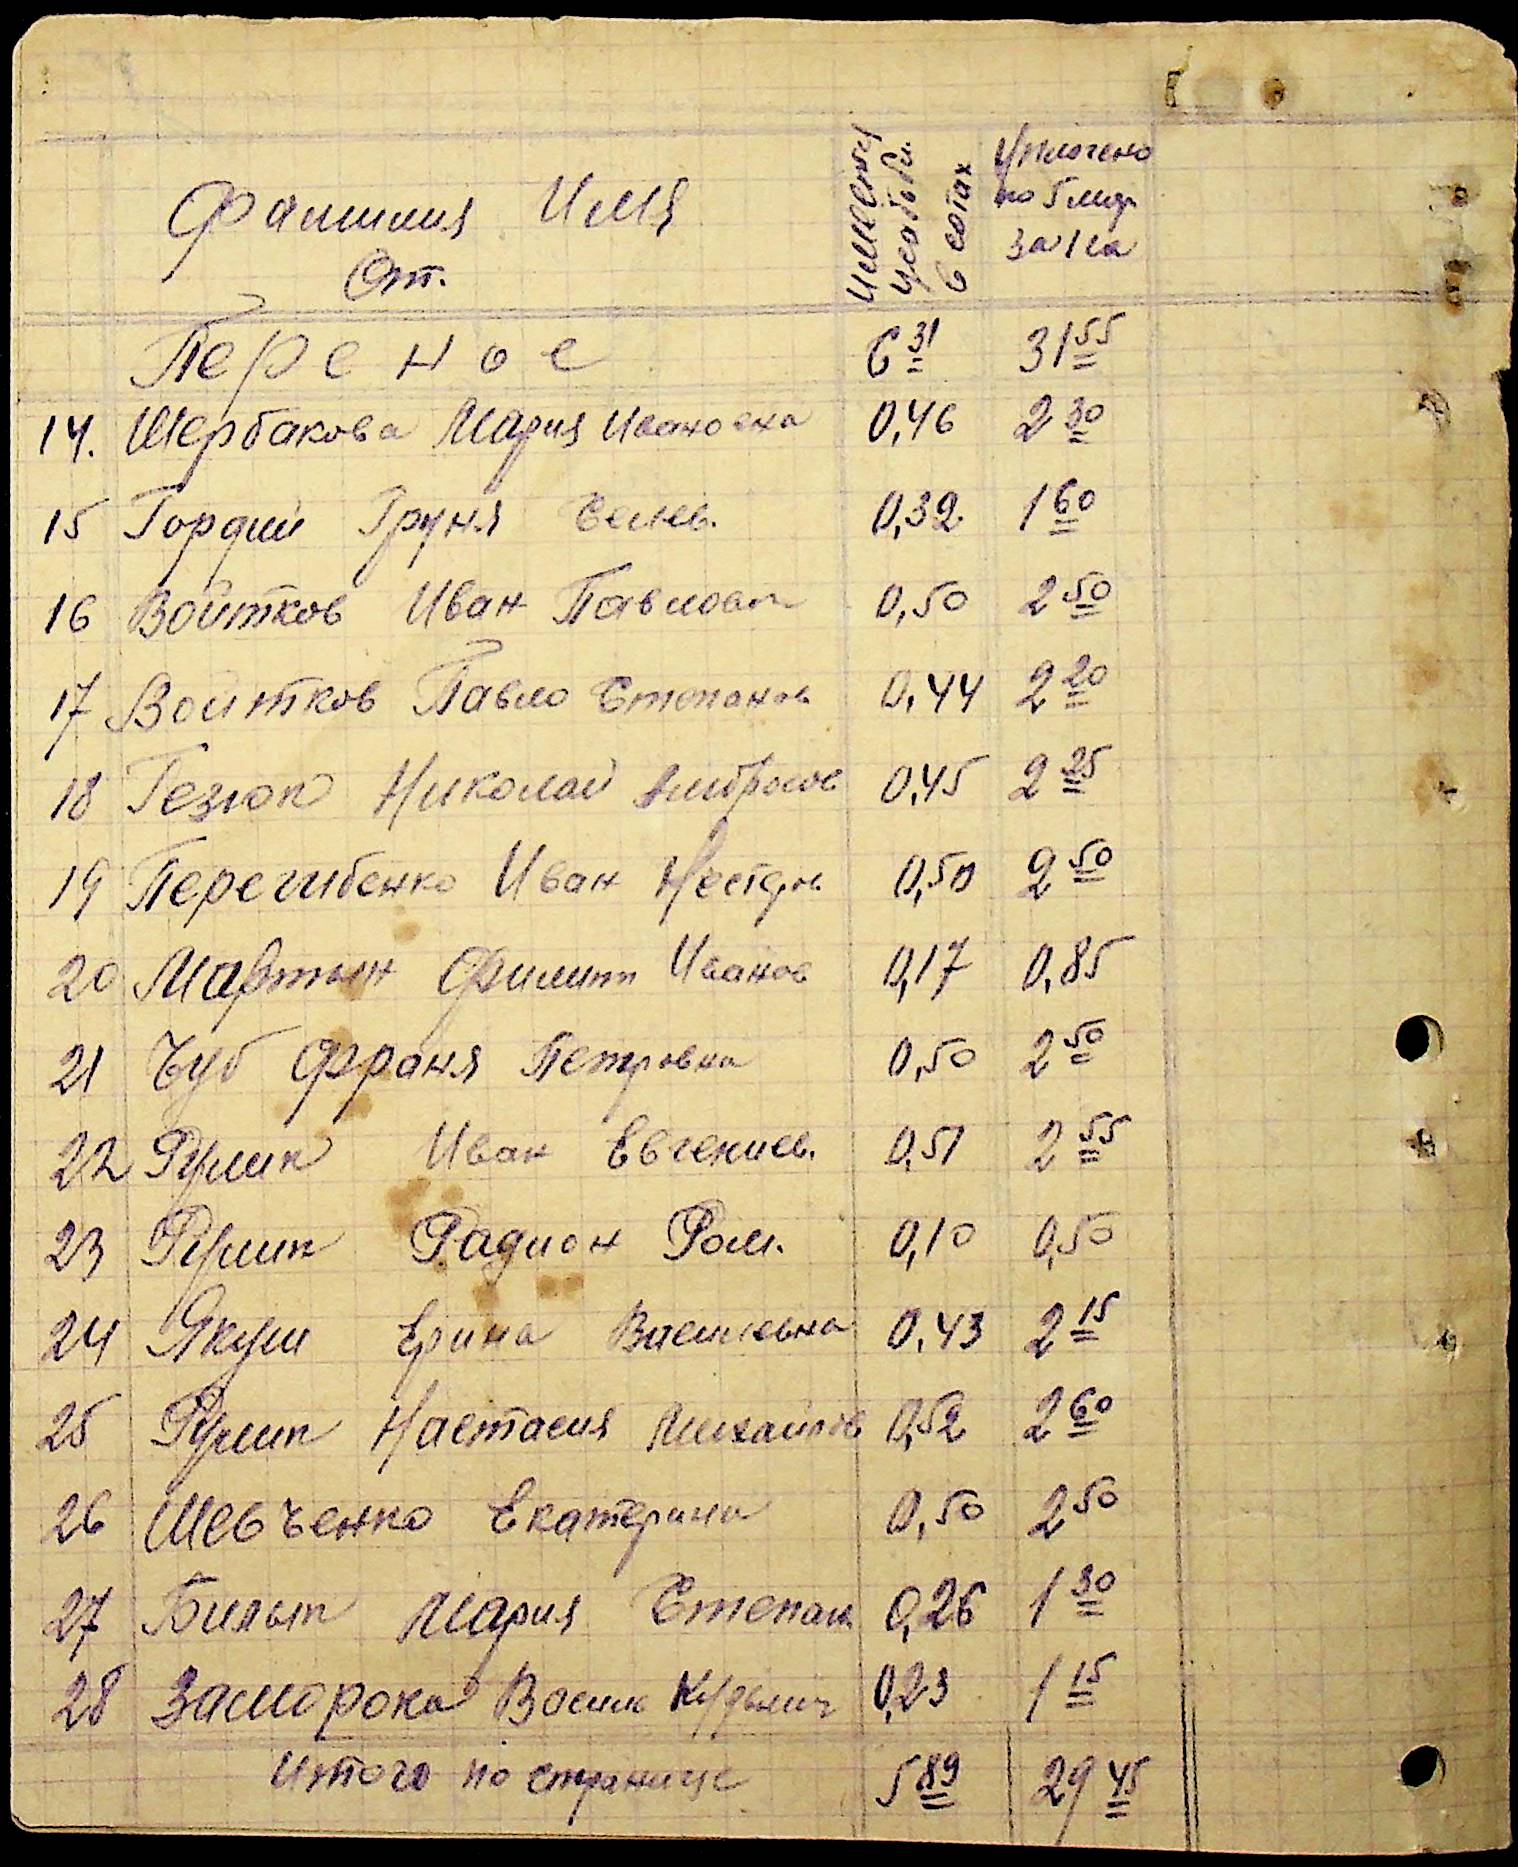 Фамилия Имя
От.
Имеется
усадьбы
в сотах
Уплочено
по 5 мир
за 1 га
Перенос 6 31 31 55
14. Шербакова Мария Ивановна 0,46 2 30
15 Гордий Груня Селив. 0,32 1 60
16 Войтков Иван Павлович 0,50 2 50
17 Войтков Павло Степанов 0,44 2 20
18 Гезюп Николай Амбросов 0,45 2 25
19 Перегибенко Иван Нестор 0,50 2 50
20 Мартын Филипп Иванов 0,17 0,85
21 Чуб Франя Петровна 0,50 2 50
22 Рулип Иван Евгениев. 0,51 2 55
23 Рулип Радион Ром. 0,10 0,50
24 Якуш Ерина Васильевна 0,43 2 15
25 Рулип Настасия Михайлов 0,52 2 60
26 Шевченко Екатерина 0,50 2 50
27 Билып Мария Степан 0,26 1 30
28 Заморока Василь 0,23 1 15
Итого по странице 5 89 29 45